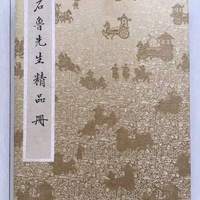 石魯先生精品冊